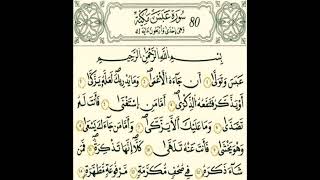 سورة عبس مكية 80
بسم الله الرحمن الرحيم
عبس وتولى أن جاءه الأعمى وما يدريك لعله يزكى
أو يذكر فتنفعه الذكرى أما من استغنى فأنت له
تصدى وما عليك ألا يزكى وأما من جاءك يسعى
وهو يخشى فأنت عنه تلهى كلا إنها تذكرة فمن
شاء ذكره في صحف مكرمة مرفوعة مطهرة